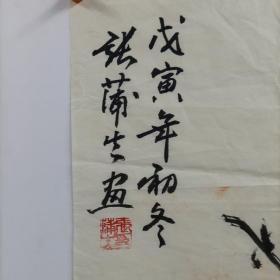 戊寅年初冬
張蒲生画